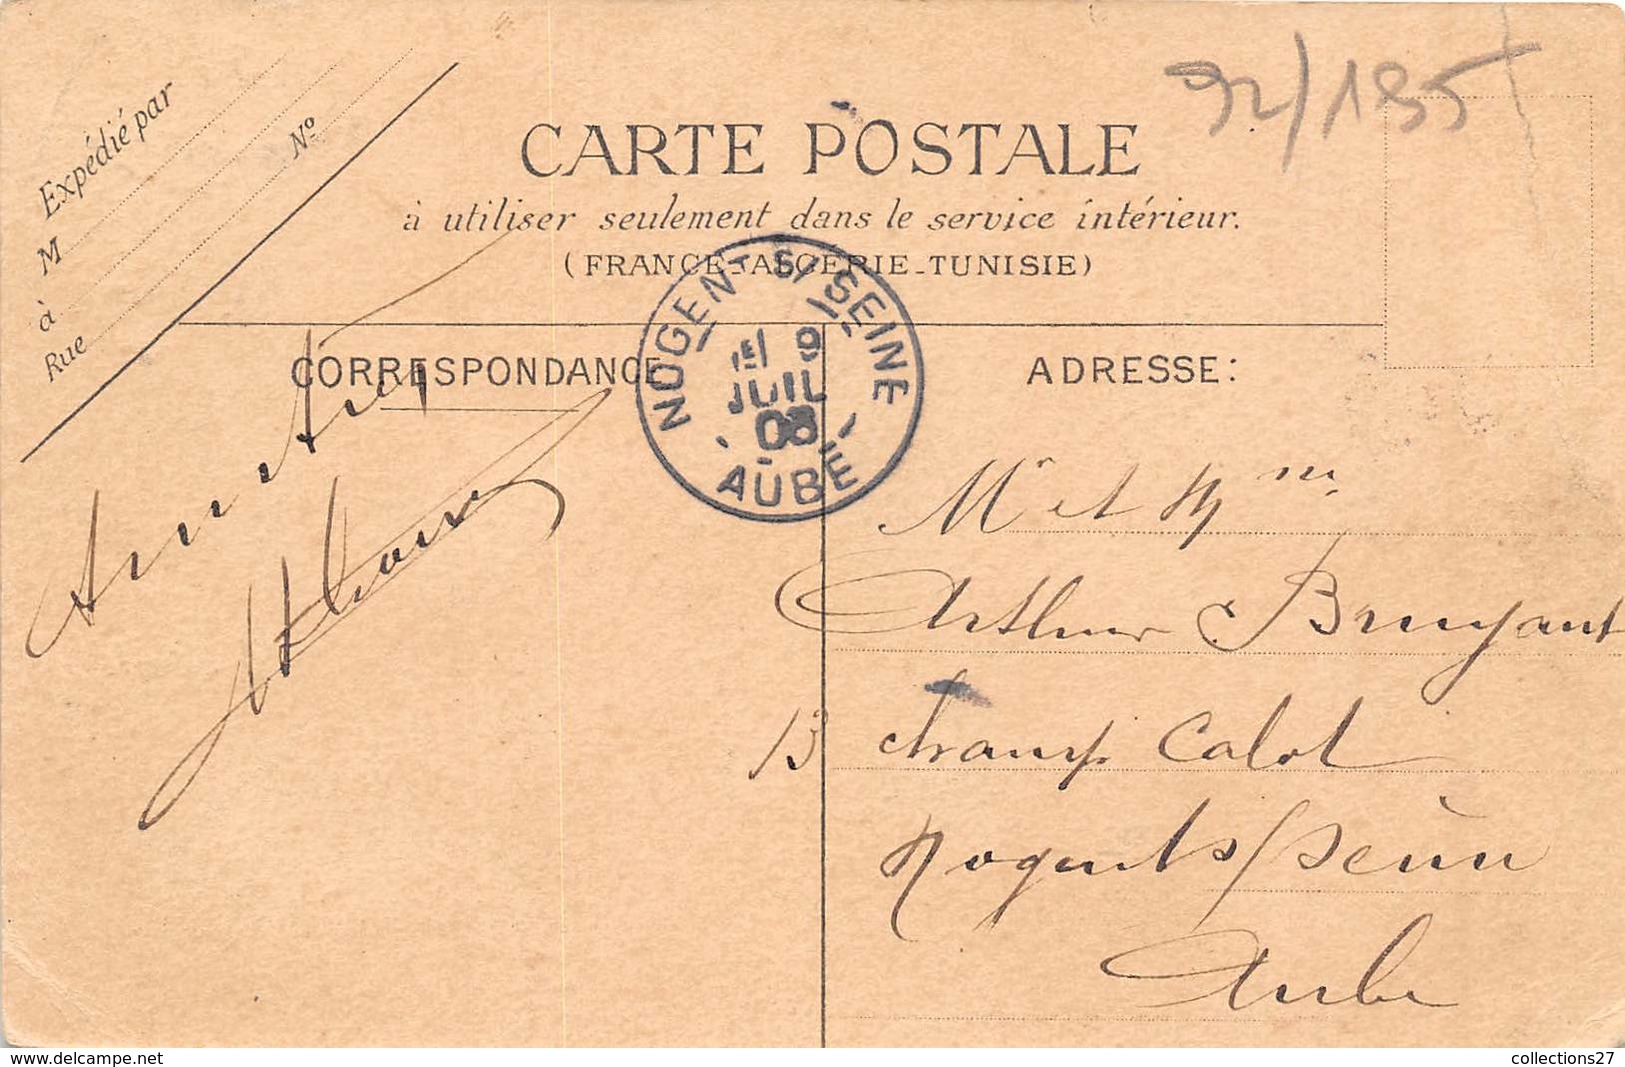 Expédié par
M
à
Rue
Nº
92/195
CARTE POSTALE
à utiliser seulement dans le service intérieur.
(FRANCE-ALGÉRIE-TUNISIE)
CORRESPONDANCE
ADRESSE:
NOGENT S/ SEINE
1E/ 9
JUIL
08
AUBE
Mr et Mme
Arthur Bruyant
13 champ Calot
Nogent s/ Seine
Aube
www.delcampe.net
collections27